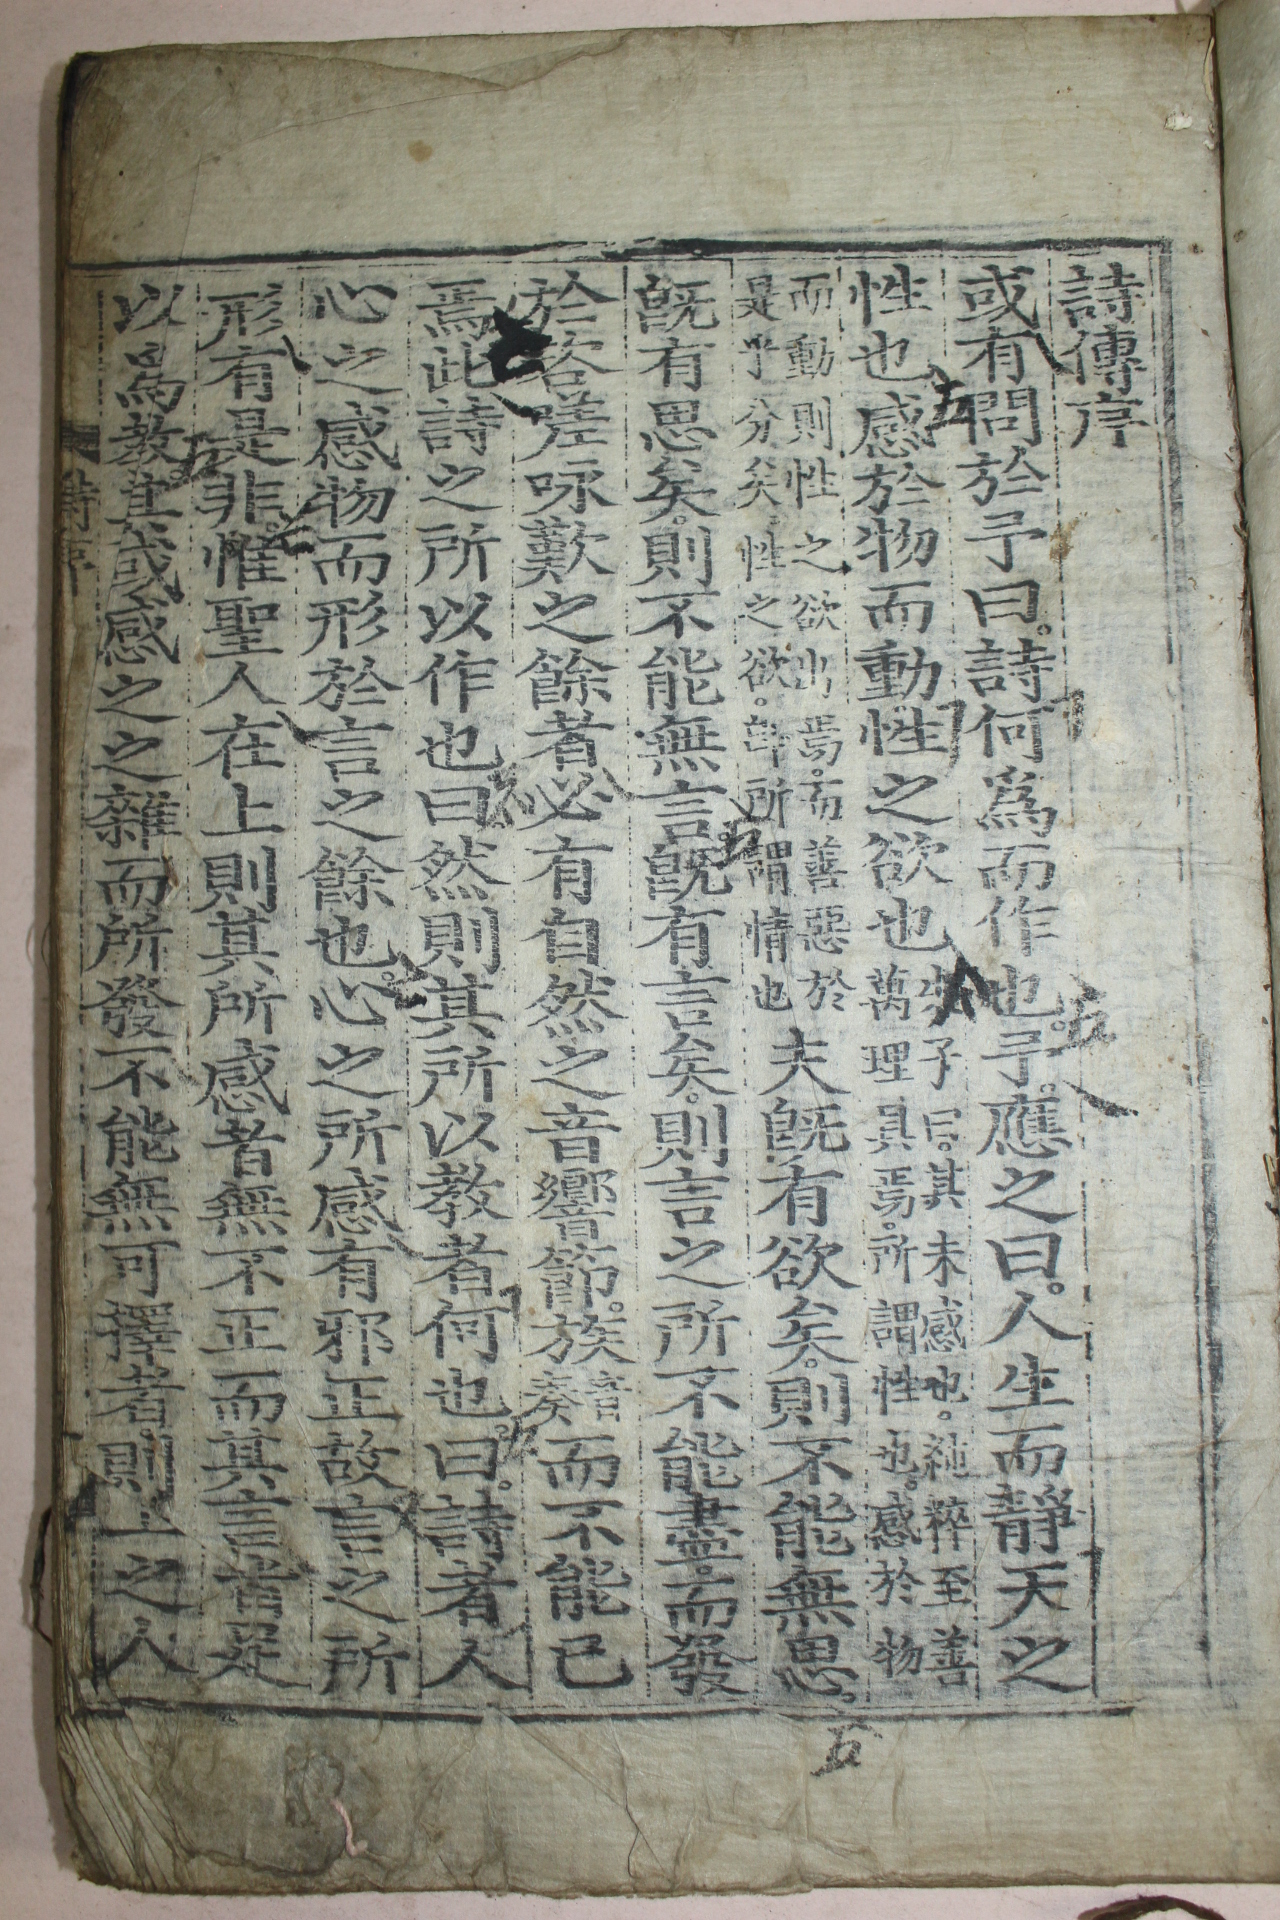 詩傳序
或有問於予曰。詩何爲而作也。予應之曰。人生而靜天之
性也感於物而動。性之欲也朱子曰。其未感也。純粹至善萬理具焉。所謂性也。感於物
而動則性之欲出焉。而善惡於是乎分矣。性之欲。卽所謂情也夫旣有欲矣。則不能無思。
旣有思矣。則不能無言。旣有言矣。則言之所不能盡。而發
於咨嗟咏歎之餘者必有自然之音響節。族音奏而不能已
焉此詩之所以作也曰然則其所以敎者何也。曰。詩者人
心之感物而形於言之餘也。心之所感有邪正故言之所
形有是非。惟聖人在上則其所感者無不正而其言皆足
以爲敎其或感之之雜而所發不能無可擇者。則上之人
詩序